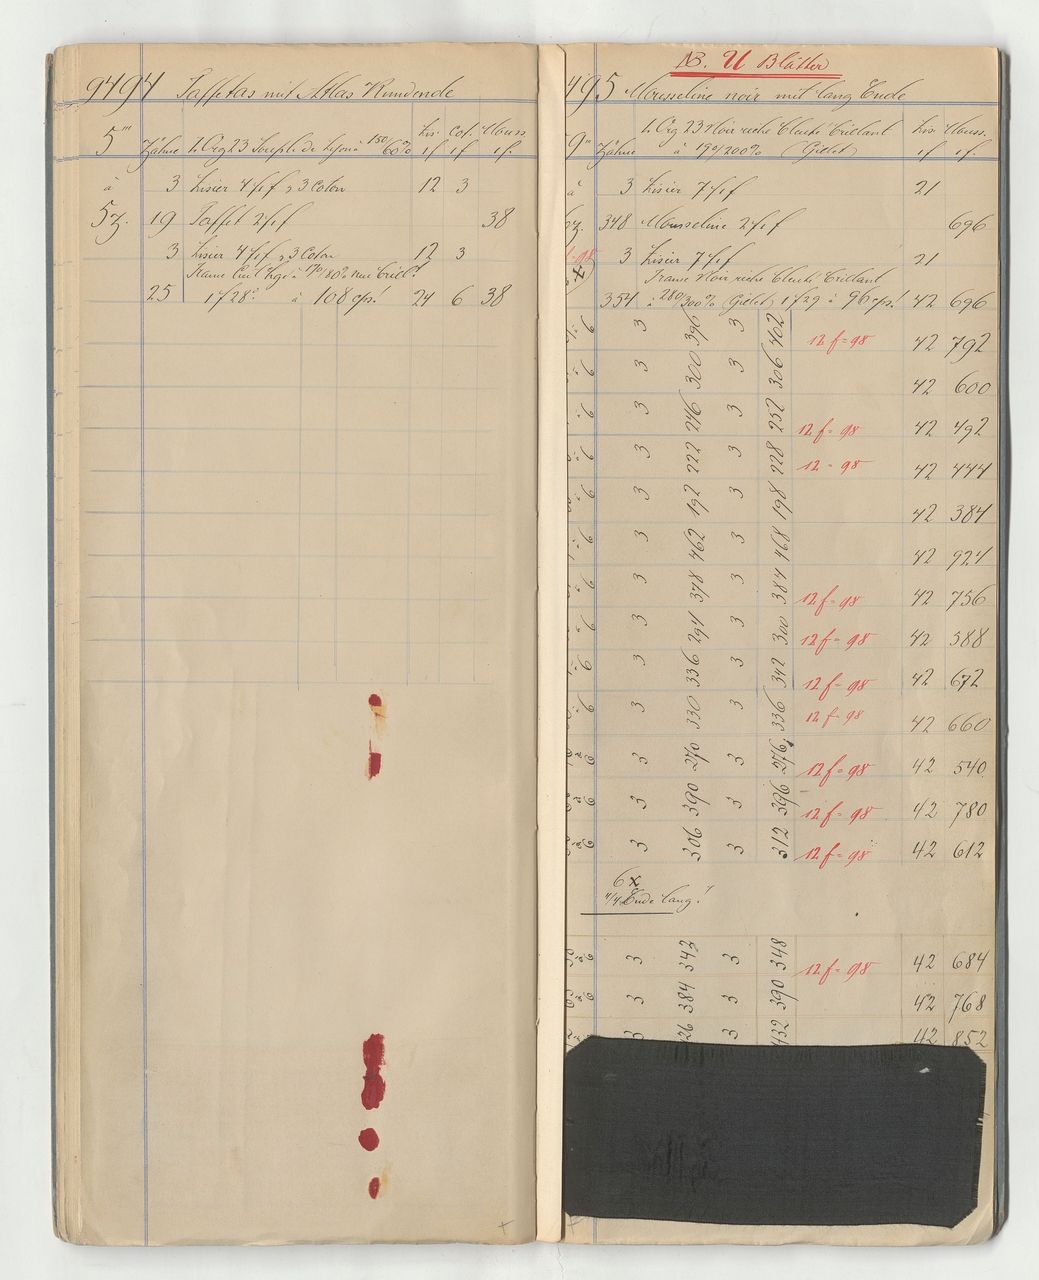 9494 Taffetas mit Atlas Rundende
Lis. Cot. Chouss.
5''' Zähne 1. Org 23 Souple de Lyon à 150/60% 1f 1f 1f.
à 3 Lisier 4f1f, 3 Coton 12 3
5z. 19 Taffet 2f1f 38
3 Lisier 4f1f, 3 Coton 12 3
Trame
25 1f28 à 108 cps! 24 6 38
NB. U Blätter
495 Mousseline noir mit lang Ende
1. Org 23 Noir Brillant Lis. Chouss.
9''' Zähne à 190/200% (Gillet) 1f 1f.
à 3 Lisier 7f1f 21
348 Mousseline 2f1f 696
3 Lisier 7f1f 21
Trame Noir Brillant
354 à 280/300% (Gillet) 1f29 à 96 cps! 42 696
3 396 3 402 12 f = 98 42 792
3 300 3 306 42 600
3 246 3 252 12 f = 98 42 492
3 222 3 228 12 = 98 42 444
3 192 3 198 42 384
3 462 3 468 42 924
3 378 3 384 12 f = 98 42 756
3 294 3 300 12 f = 98 42 588
3 336 3 342 12 f = 98 42 672
3 330 3 336 12 f = 98 42 660
3 270 3 276 12 f = 98 42 540
3 390 3 396 12 f = 98 42 780
3 306 3 312 12 f = 98 42 612
6 x
Ende lang!
3 342 3 348 12 f = 98 42 684
3 384 3 390 42 768
3 26 3 432 42 852